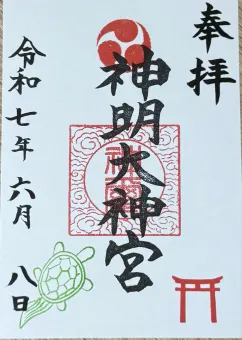 奉拝
神明大神宮
令和七年 六月 八日